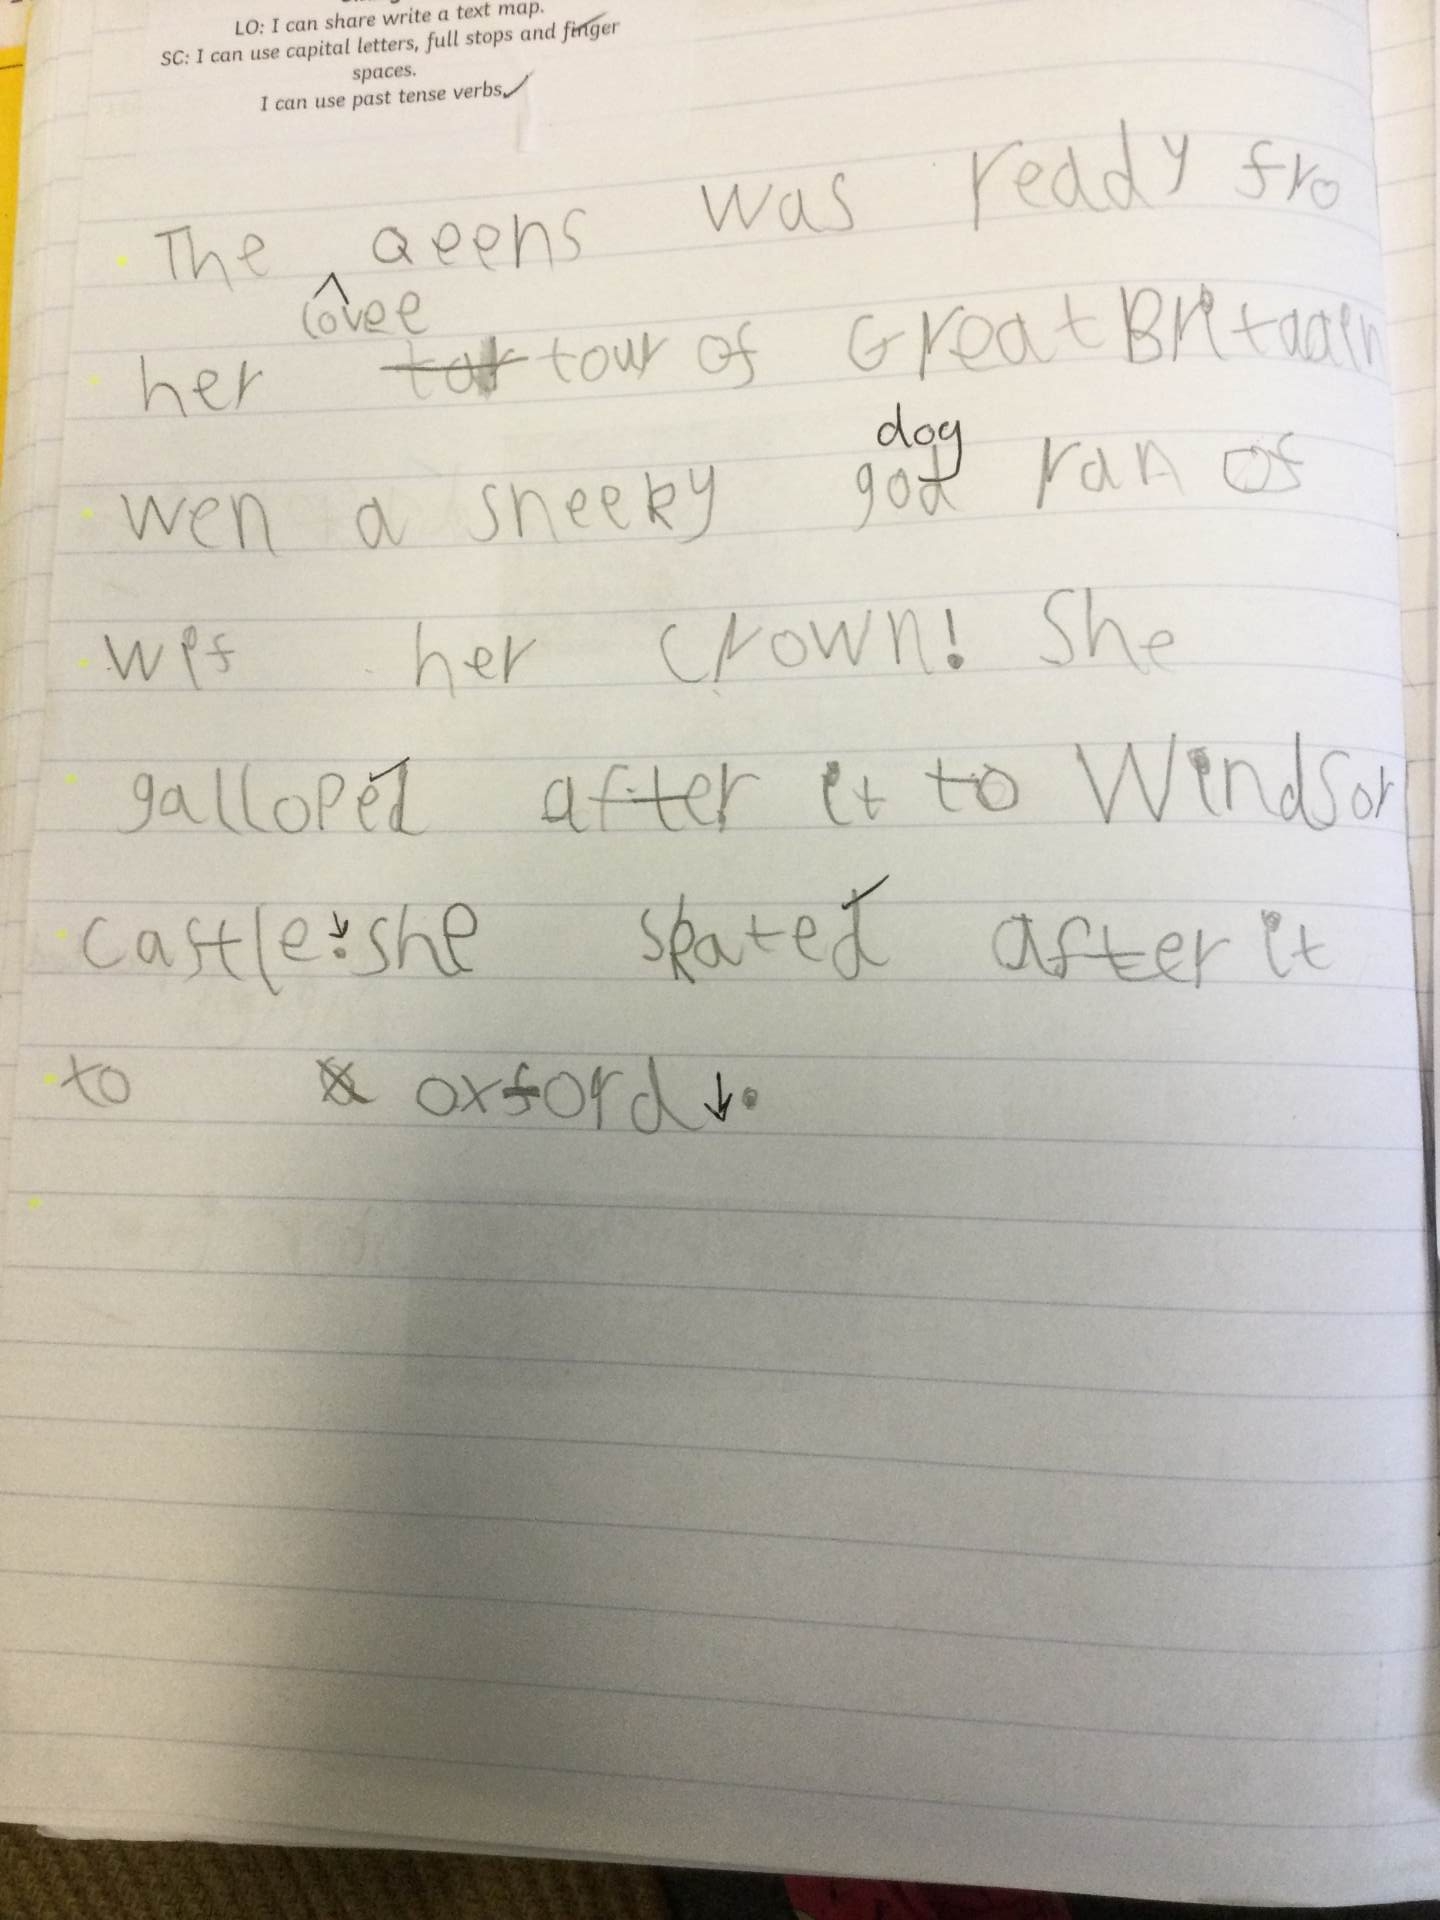 LO: I can share write a text map.
SC: I can use capital letters, full stops and finger
spaces.
I can use past tense verbs.
The Qeens was reddy fro
lovee
her tour of Great BRitaain
dog
wen a sneeky god ran of
wif her crown! She
galloped after it to Windsor
castle. she skated after it
to oxford.